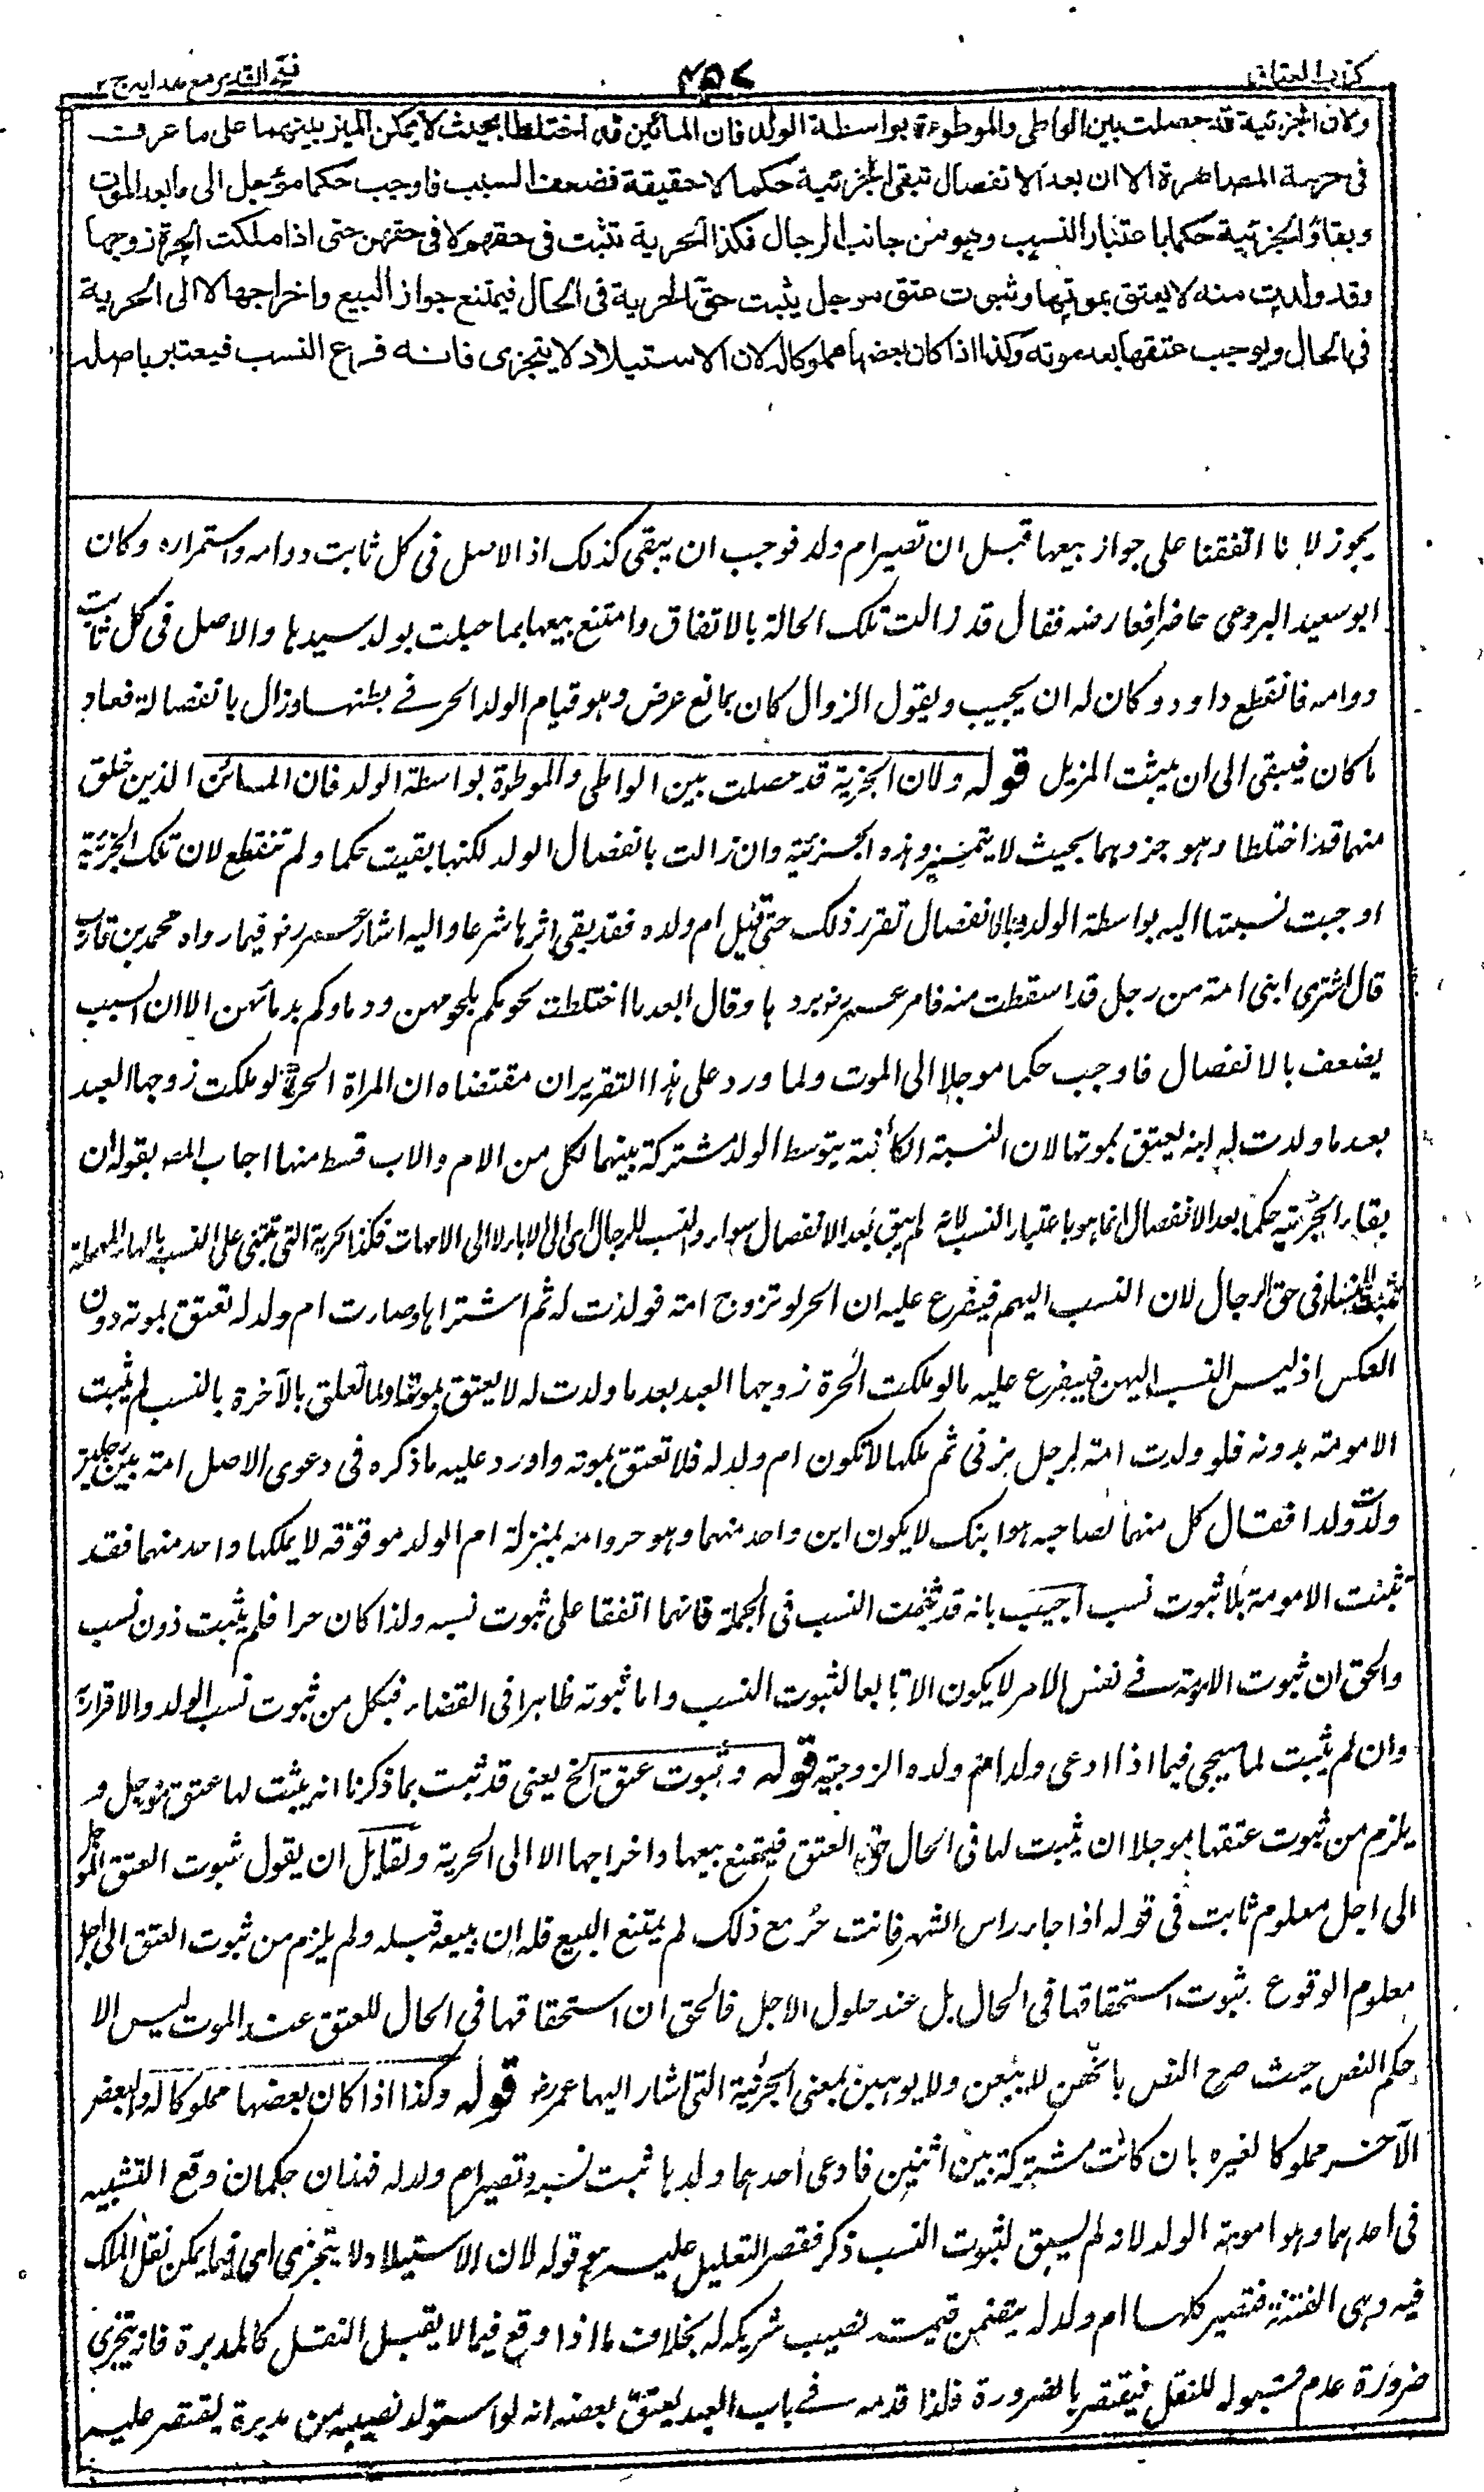 كتاب العتاق
٤٥٧
فتح القدير مع هدايه ج ٢
ولان الجزئية قد حصلت بين الواطى والموطوءة بواسطة الولد فان المائين قد اختلطا بحيث لا يمكن الميز بينهما على ما عرف
فى حرمة المصاهرة الا ان بعد الانفصال تبقى الجزئية حكما لا حقيقة فضعف السبب فاوجب حكما مؤجل الى ما بعد الموت
وبقاء الجزئية حكما باعتبار النسب وهو من جانب الرجال فكذا الحرية تثبت فى حقهم لا فى حقهن حتى اذا ملكت الحرة زوجها
وقد ولدت منه لا يعتق بموتها وثبوت عتق مؤجل يثبت حق الحرية فى الحال فيمتنع جواز البيع واخراجها لا الى الحرية
فى الحال ويوجب عتقها بعد موته وكذا اذا كان بعضها مملوكا له لان الاستيلاد لا يتجزى فانه فرع النسب فيعتبر باصله
يجوز لانا اتفقنا على جواز بيعها قبل ان تصير ام ولد فوجب ان يبقى كذلك اذ الاصل فى كل ثابت دوامه واستمراره وكان
ابو سعيد البردعى حاضرا فعارضه فقال قد زالت تلك الحالة بالاتفاق وامتنع بيعها بما حبلت بولد سيدها والاصل فى كل ثابت
دوامه فانقطع داود وكان له ان يجيب ويقول الزوال كان بمانع عرض وهو قيام الولد الحر فى بطنها وزال بانفصاله فعاد
ما كان فيبقى الى ان يثبت المزيل قوله ولان الجزئية قد حصلت بين الواطى والموطوءة بواسطة الولد فان المائين الذين خلق
منهما قد اختلطا وهو جزوهما بحيث لا يتميز وهذه الجزئية وان زالت بانفصال الولد لكنها بقيت حكما ولم تنقطع لان تلك الجزئية
اوجبت نسبتها اليه بواسطة الولد وبالانفصال تقرر ذلك حتى قيل ام ولده فقد بقى اثرها شرعا واليه اشار عمر رضـ فيما رواه محمد بن قارب
قال اشترى ابى امة من رجل قد اسقطت منه فامر عمر رضـ بردها وقال ابعد ما اختلطت لحومكم بلحومهن ودماوكم بدمائهن الا ان السبب
يضعف بالانفصال فاوجب حكما موجلا الى الموت ولما ورد على هذا التقرير ان مقتضاه ان المراة الحرة لو ملكت زوجها العبد
بعد ما ولدت له ابنه يعتق بموتها لان النسبة الكائنة بتوسط الولد مشتركة بينهما لكل من الام والاب قسط منها اجاب المصـ بقوله ان
بقاء الجزئية حكما بعد الانفصال انما هو باعتبار النسب لانه لم يبق بعد الانفصال سواه والنسب للرجال اى الى الاباء لا الى الامهات فكذا الحرية التى تبتنى على النسب بالهاء المهملة
تثبت للنساء فى حق الرجال لان النسب اليهم فيفرع عليه ان الحر لو تزوج امة فولدت له ثم اشتراها وصارت ام ولد له تعتق بموته دون
العكس اذ ليس النسب اليهن فيفرع عليه ما لو ملكت الحرة زوجها العبد بعد ما ولدت له لا يعتق بموتها ولما تعلق بالآخرة بالنسب لم يثبت
الامومة بدونه فلو ولدت امة لرجل بزنى ثم ملكها لا تكون ام ولد له فلا تعتق بموته واورد عليه ما ذكره فى دعوى الاصل امة بين رجلين
ولدت ولدا فقال كل منهما لصاحبه هو ابنك لا يكون ابن واحد منهما وهو حر وامه بمنزلة ام الولد موقوفة لا يملكها واحد منهما فقد
ثبتت الامومة بلا ثبوت نسب اجيب بانه قد ثبت النسب فى الجملة فانهما اتفقا على ثبوت نسبه ولذا كان حرا فلم يثبت دون نسب
والحق ان ثبوت الامومة فى نفس الامر لا يكون الا تابعا لثبوت النسب واما ثبوته ظاهرا فى القضاء فبكل من ثبوت نسب الولد والاقرار به
وان لم يثبت لما سيجى فيما اذا ادعى ولد امته ولده الزوجية قوله وثبوت عتق الخ يعنى قد ثبت بما ذكرنا انه يثبت لها عتق مؤجل و
يلزم من ثبوت عتقها موجلا ان يثبت لها فى الحال حق العتق فيمتنع بيعها واخراجها الا الى الحرية ولقائل ان يقول ثبوت العتق المؤجل
الى اجل معلوم ثابت فى قوله اذا جاء راس الشهر فانت حُر مع ذلك لم يمتنع البيع فله ان يبيعه قبله ولم يلزم من ثبوت العتق الى اجل
معلوم الوقوع ثبوت استحقاقها فى الحال بل عند حلول الاجل فالحق ان استحقاقها فى الحال للعتق عند الموت ليس الا
حكم النص حيث صرح النص بانهن لا يبعن ولا يوهبن لمعنى الجزئية التى اشار اليها عمر رضـ قوله وكذا اذا كان بعضها مملوكا له والبعض
الآخر مملوكا لغيره بان كانت مشتركة بين اثنين فادعى احدهما ولدها ثبت نسبه وتصير ام ولد له فهذان حكمان وقع التشبيه
فى احدهما وهو امومة الولد لانه لم يسبق لثبوت النسب ذكر فقصر التعليل عليه هو قوله لان الاستيلاد لا يتجزى اى فيما يمكن نقل الملك
فيه وهى القنة فتصير كلها ام ولد له يتضمن قيمت نصيب شريكه له بخلاف ما اذا وقع فيما لا يقبل النقل كالمدبرة فانه يتجزى
ضرورة عدم قبوله للنقل فيقتصر بالضرورة فلذا قدمه فى باب العبد يعتق بعضه انه لو استولد نصيبه من مدبرة يقتصر عليه